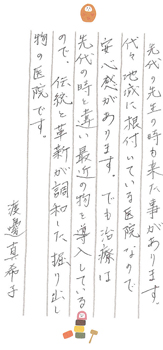 先代の先生の時も来た事があります。
代々地域に根付いている医院なので
安心感があります。でも治療は
先代の時と違い最近の物を導入している
ので、伝統と革新が調和した掘り出し
物の医院です。
渡邊真希子